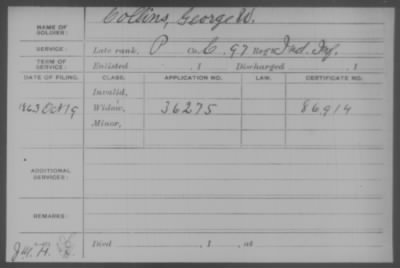 NAME OF SOLDIER: Collins, George W.
SERVICE: Late rank, P Co. C, 97 Reg't Ind. Inf.
TERM OF SERVICE: Enlisted , 1 Discharged , 1
DATE OF FILING. CLASS. APPLICATION NO. LAW. CERTIFICATE NO.
Invalid,
1863 Oct 19 Widow, 36275 86.914
Minor,
ADDITIONAL SERVICES:
REMARKS:
Died , 1 , at